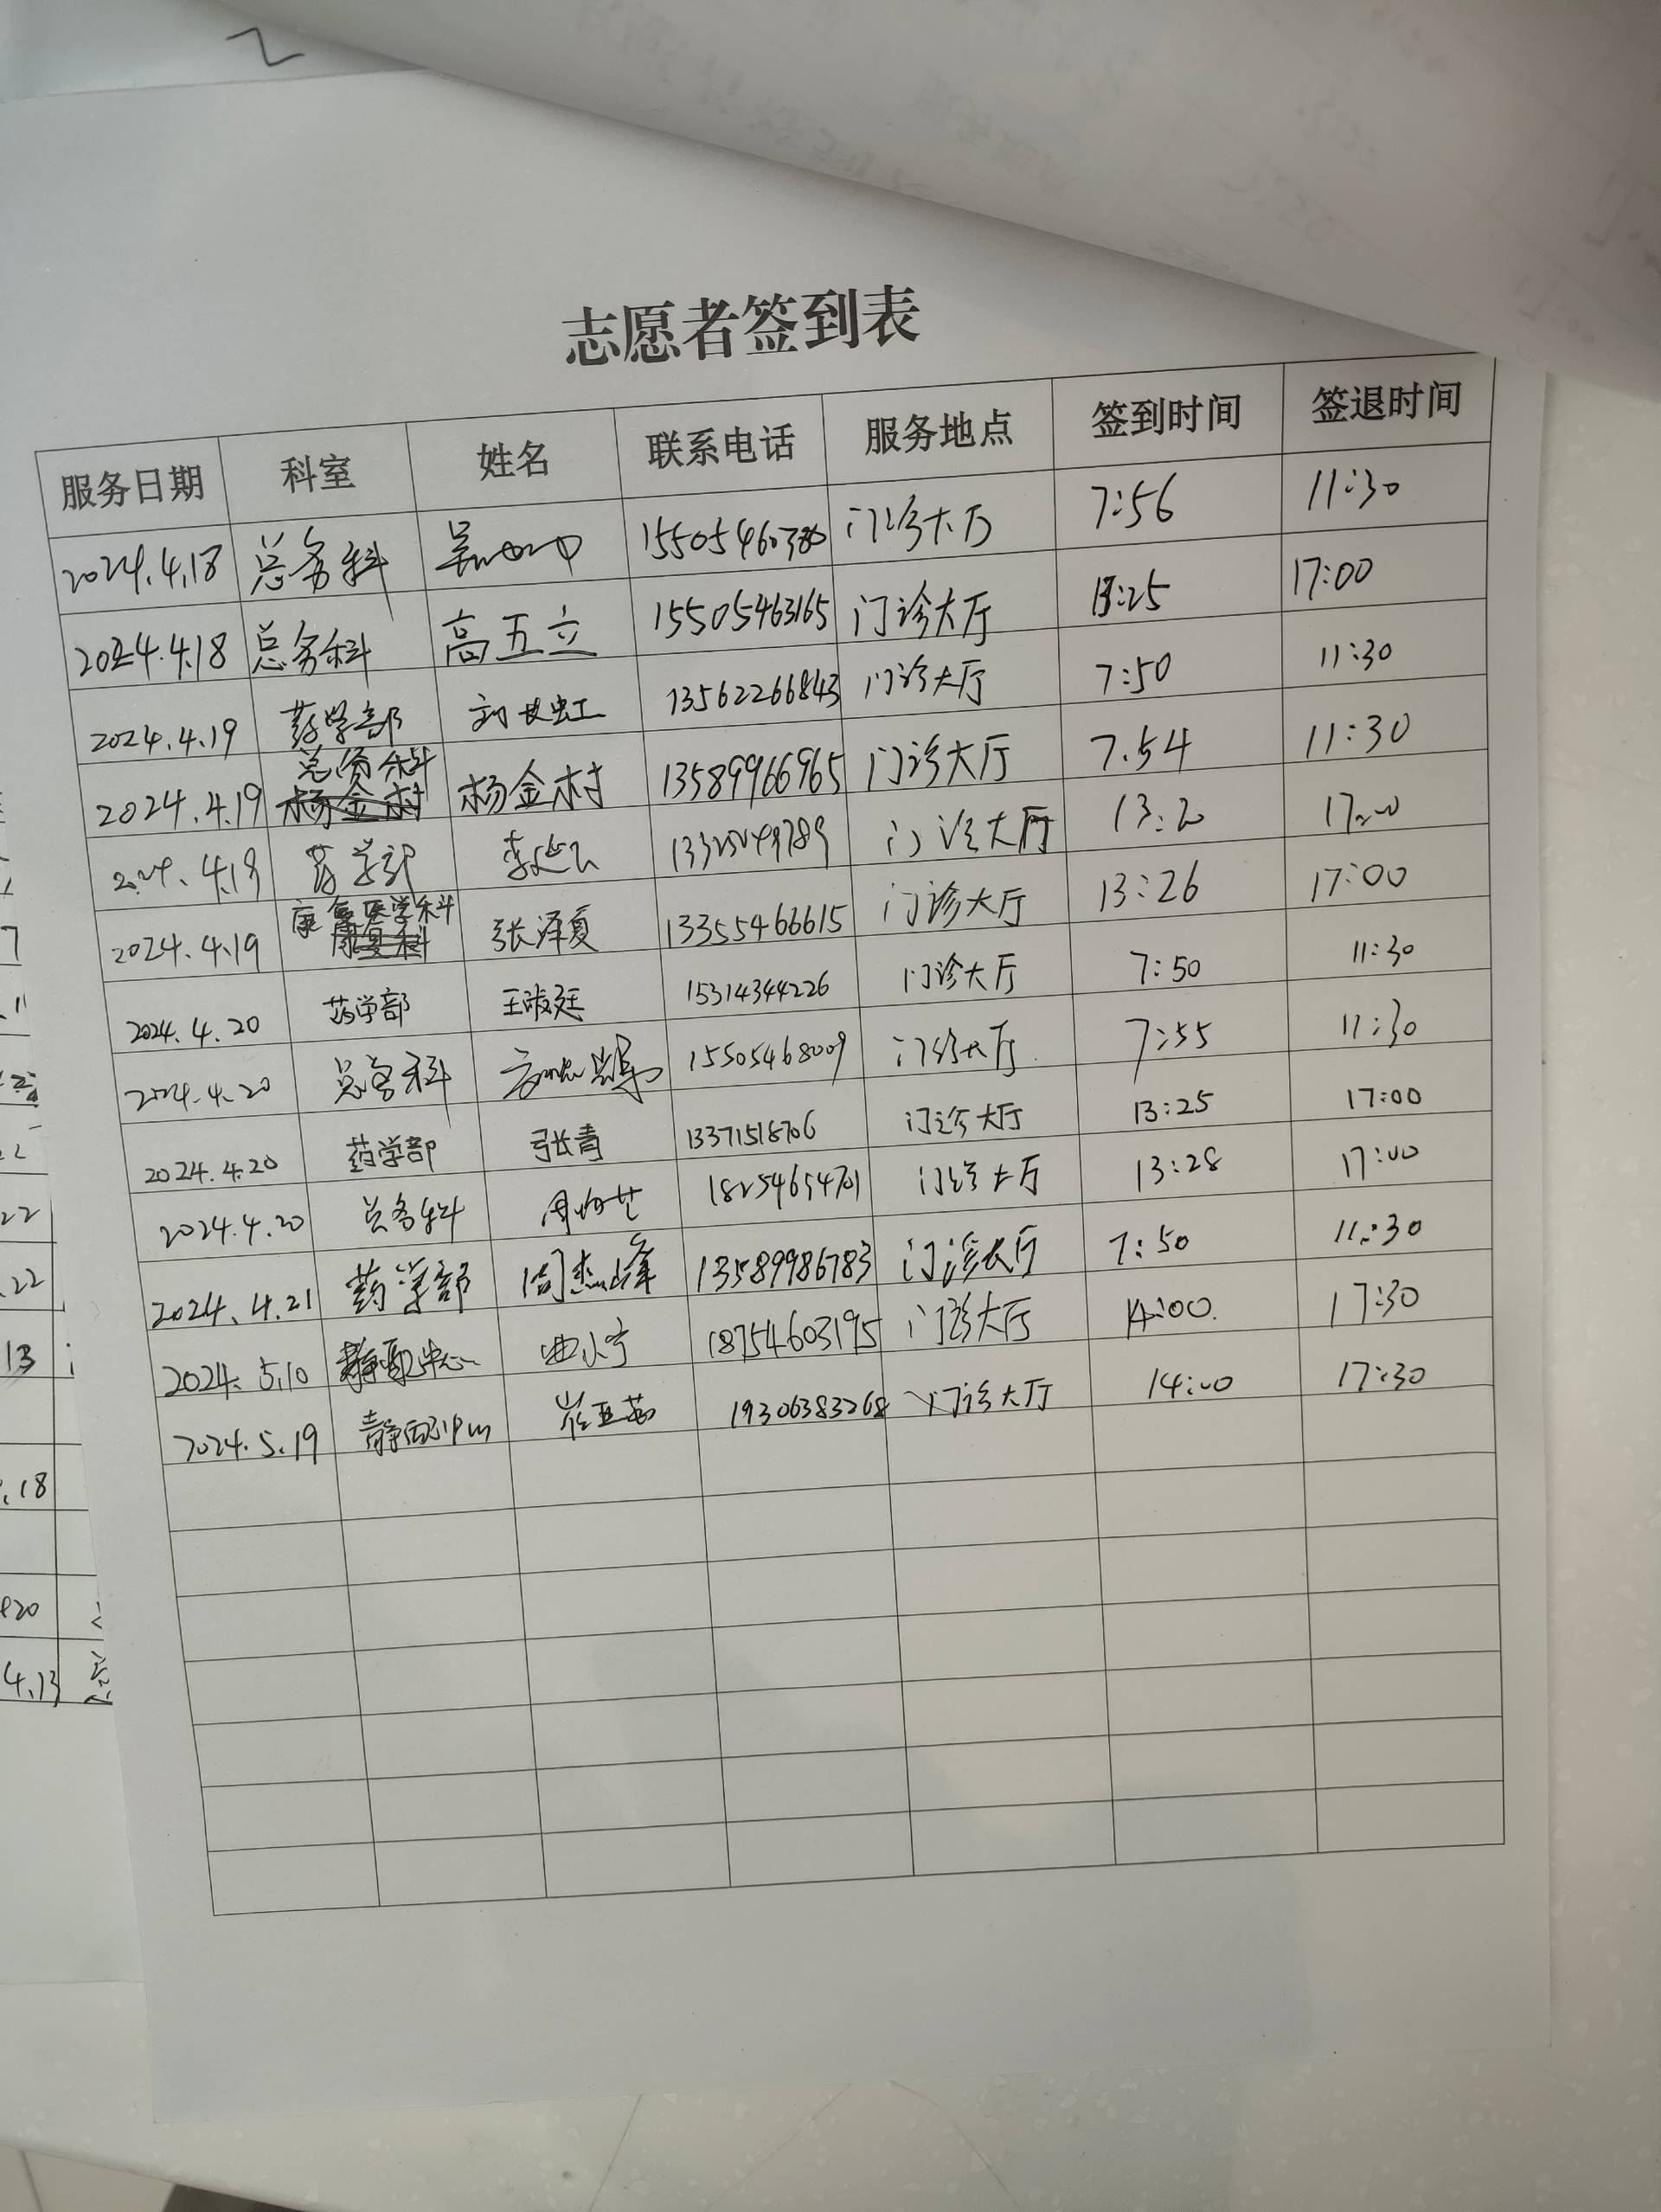 志愿者签到表
服务日期 科室 姓名 联系电话 服务地点 签到时间 签退时间
2024.4.18 总务科 15505460380 门诊大厅 7:56 11:30
2024.4.18 总务科 高五立 15505463165 门诊大厅 13:25 17:00
2024.4.19 药学部 刘长虹 13562266843 门诊大厅 7:50 11:30
2024.4.19 总务科 杨金村 13589966965 门诊大厅 7.54 11:30
2024.4.19 药学部 门诊大厅 13:20 17:00
2024.4.19 康复医学科 张泽夏 13355466615 门诊大厅 13:26 17:00
2024.4.20 药学部 王淑廷 15314344226 门诊大厅 7:50 11:30
2024.4.20 总务科 15505468009 门诊大厅 7:55 11:30
2024.4.20 药学部 张青 13371518706 门诊大厅 13:25 17:00
2024.4.20 总务科 18254654701 门诊大厅 13:28 17:00
2024.4.21 药学部 13589986783 门诊大厅 7:50 11:30
2024.5.10 静配中心 曲小宁 18754603195 门诊大厅 14:00 17:30
2024.5.19 静配中心 崔亚茹 19306383268 门诊大厅 14:00 17:30